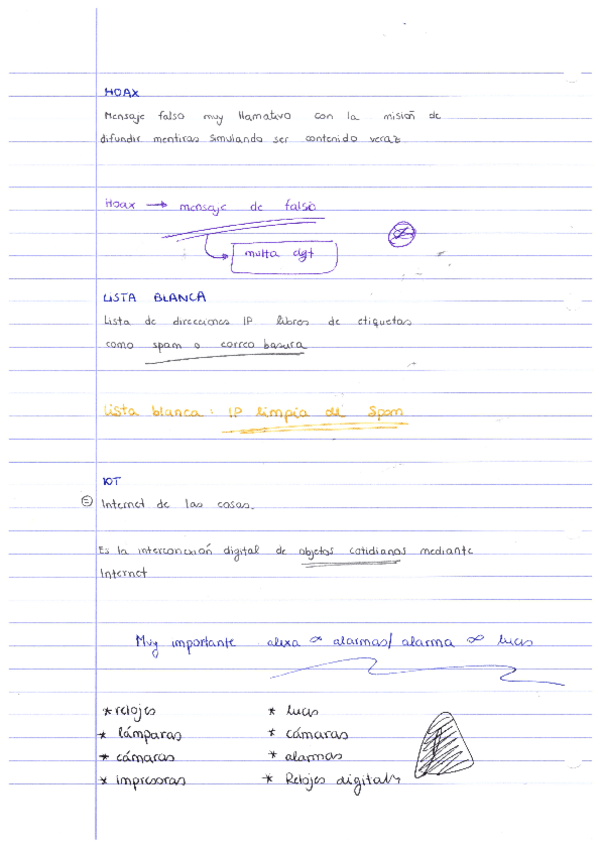 HOAX
Mensaje falso muy llamativo con la misión de
difundir mentiras simulando ser contenido veraz.
Hoax → mensaje de falso
multa dgt
LISTA BLANCA
Lista de direcciones IP libres de etiquetas
como spam o correo basura
Lista blanca: IP limpia de Spam
IOT
Internet de las cosas.
Es la interconexión digital de objetos cotidianos mediante
Internet
Muy importante alexa ∞ alarmas/ alarma ∞ luces
* relojes
* lámparas
* cámaras
* impresoras
* luces
* cámaras
* alarmas
* Relojes digitals